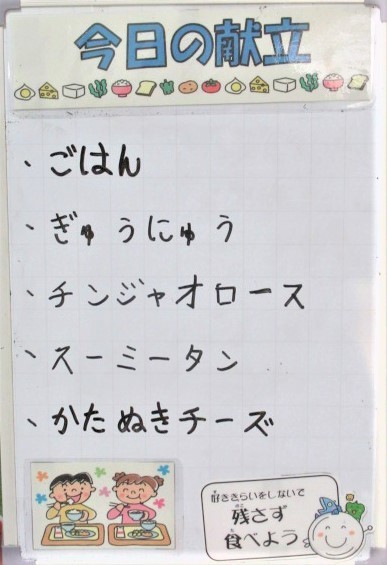 今日の献立
、ごはん
、ぎゅうにゅう
、チンジャオロース
、スーミータン
、かたぬきチーズ
好ききらいをしないで
残さず
食べよう